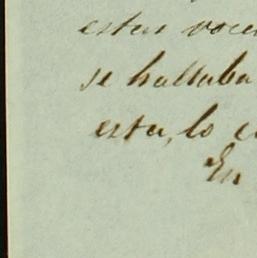 estas voce
se hallaba
esta, lo c
En